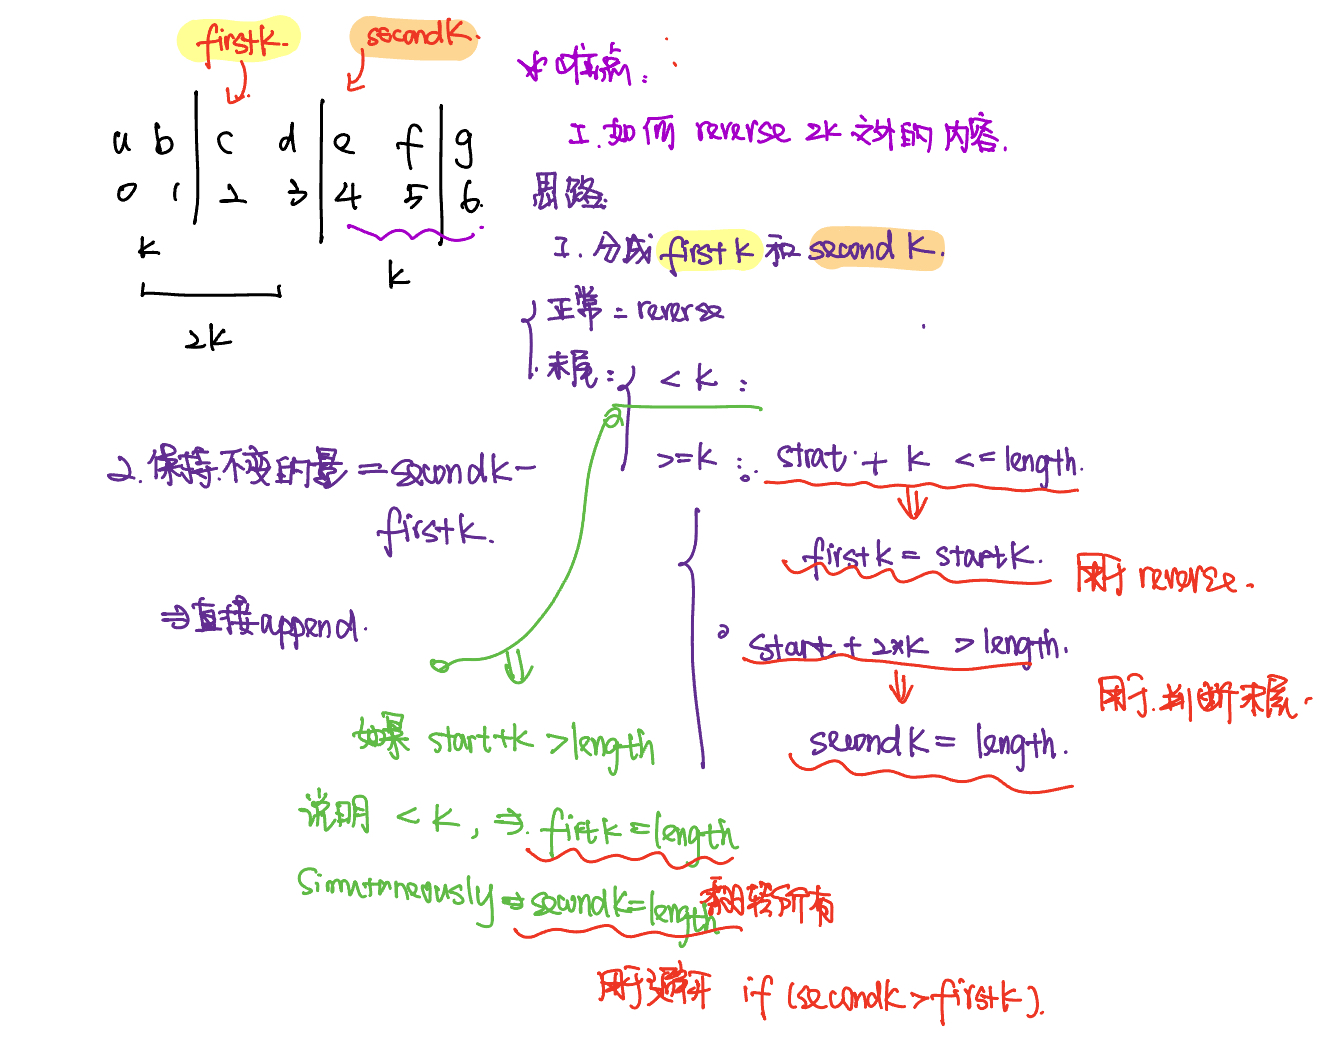 firstk. secondk.
a b c d e f g
0 1 2 3 4 5 6
k
k
2k
难点:
I. 如何 reverse 2k 之外的 内容.
思路
I. 分成 first k 和 second k.
正常 = reverse
末尾: < k :
>=k : strat + k <= length.
firstk = startk. 用于 reverse.
start + 2*k > length. 用于 判断 末尾.
secondk = length.
2. 保持 不变的量 = secondk -
firstk.
⇒ 直接 append.
如果 start+k > length
说明 < k, ⇒ firtk = length
Simutaneously ⇒ secondk = length 翻转所有
用于 避开 if (secondk > firstk).